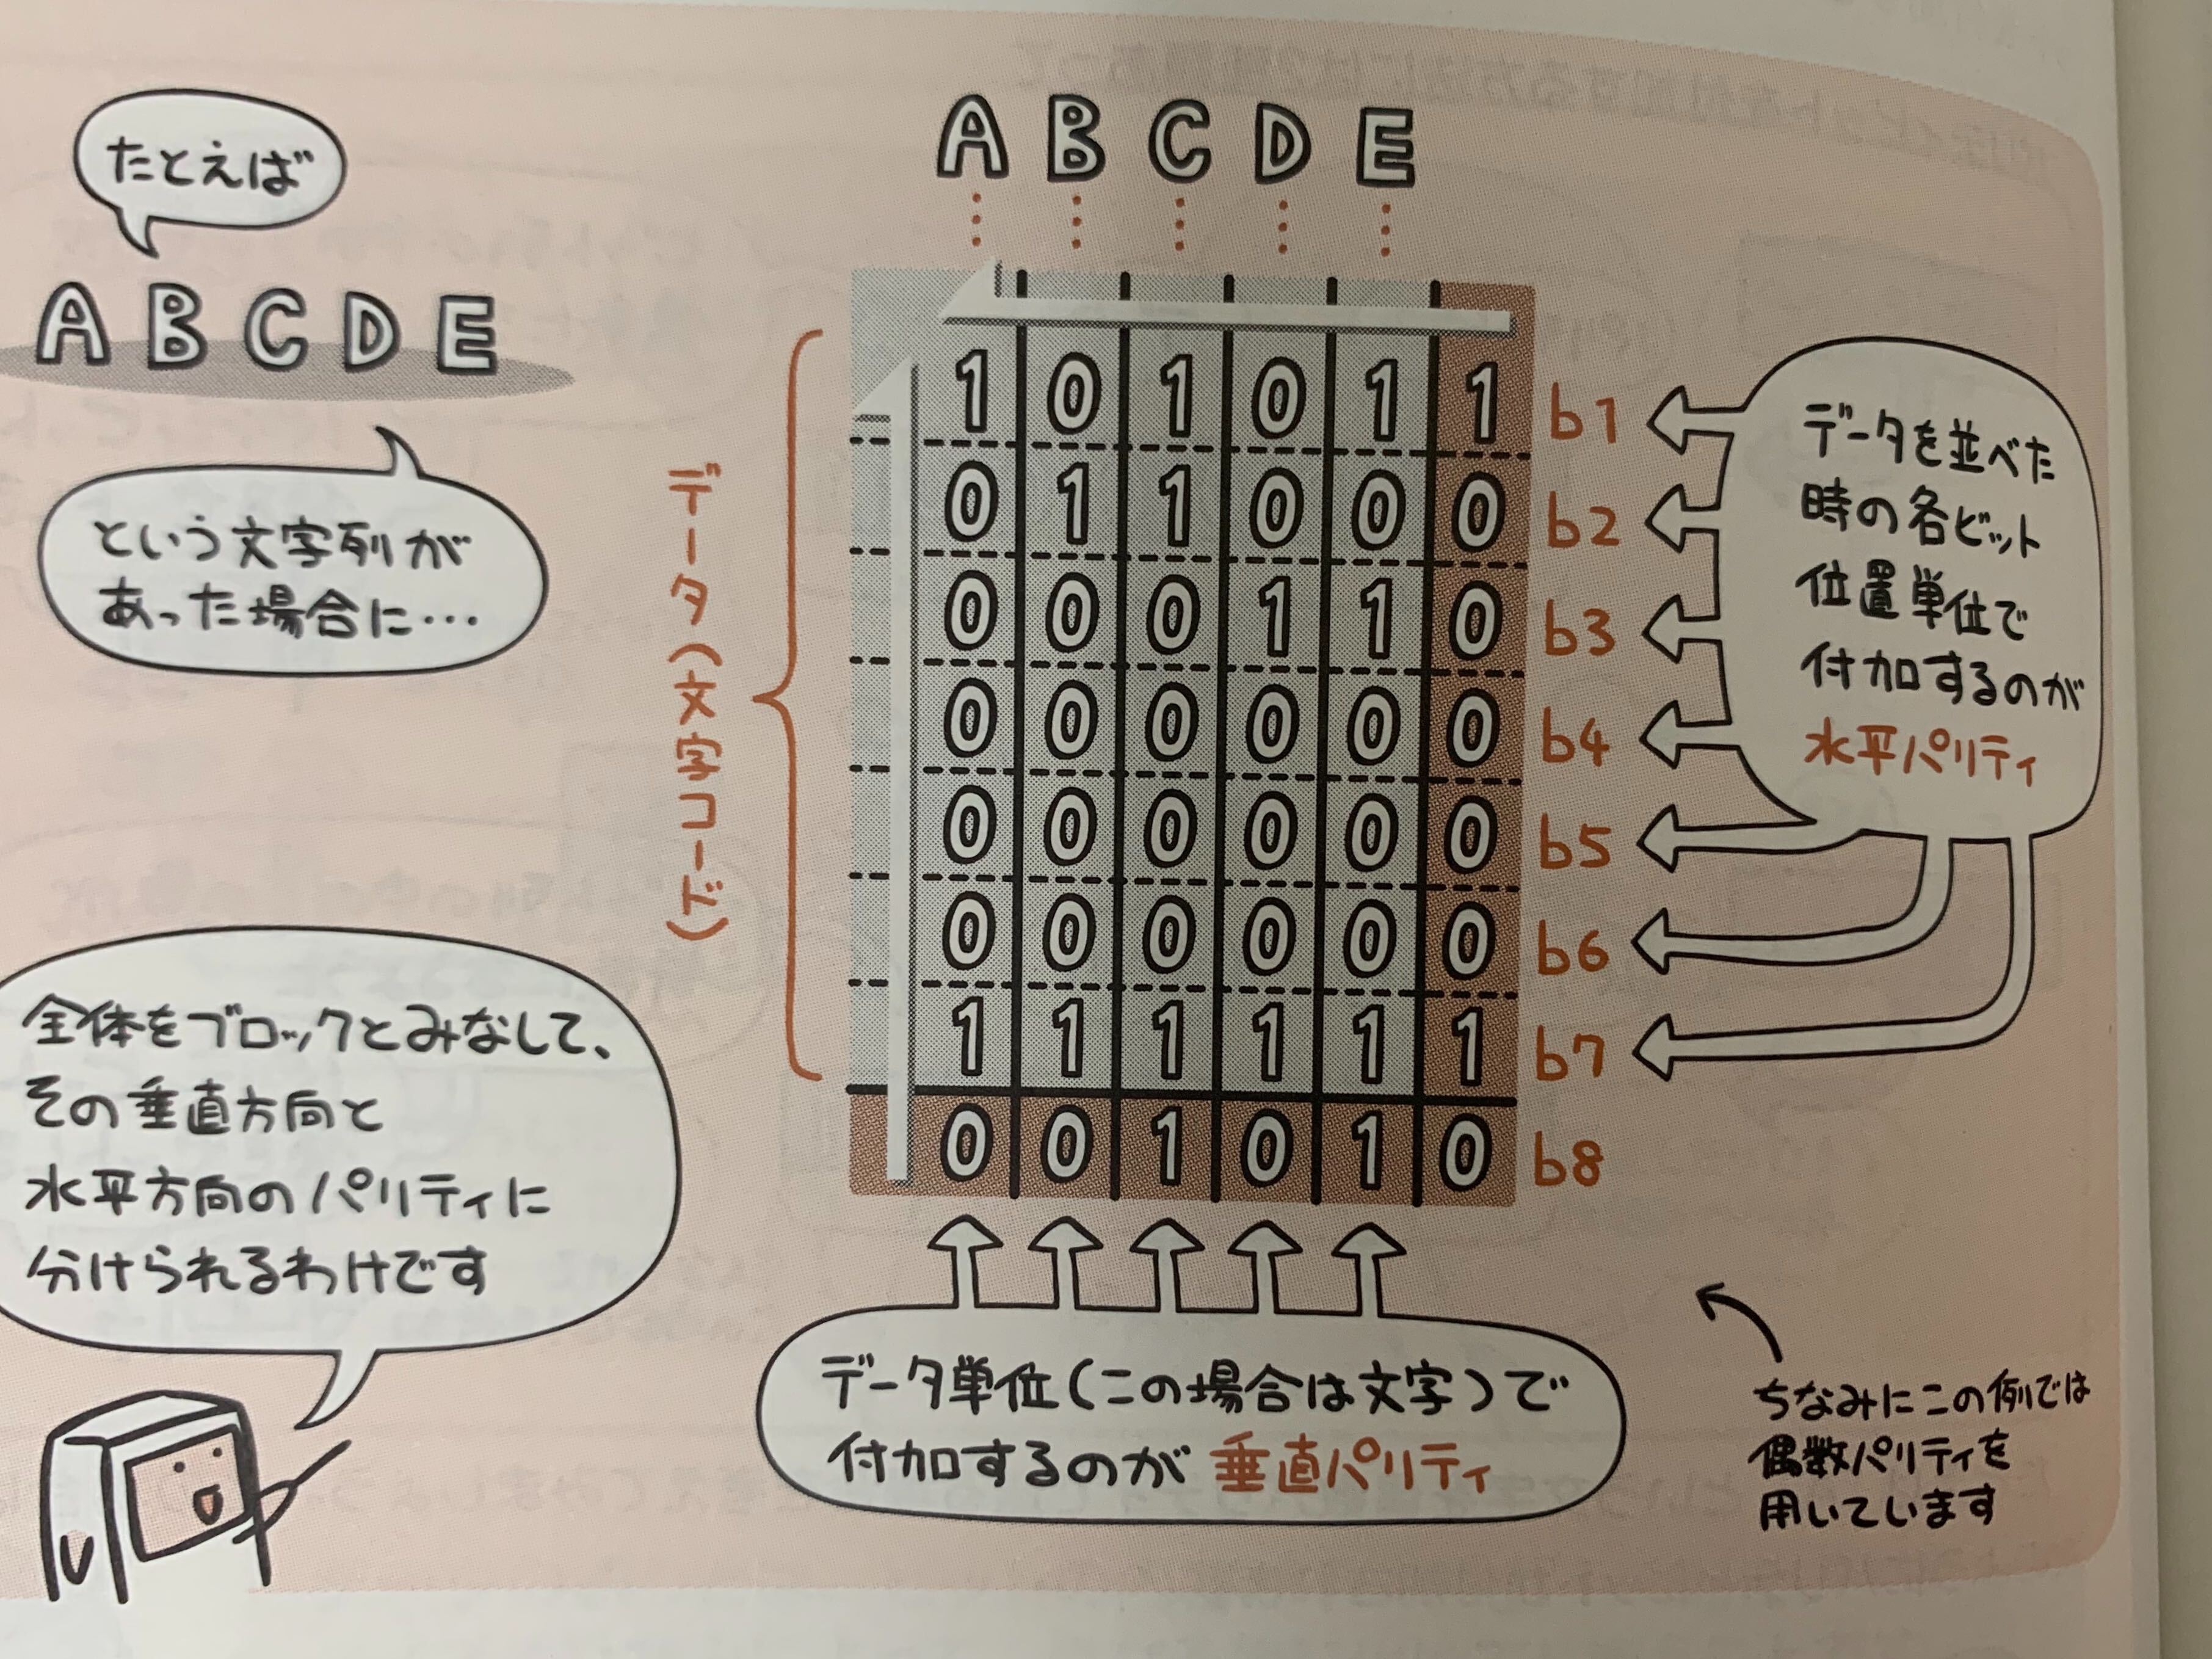 たとえば
A B C D E
という文字列が
あった場合に…
全体をブロックとみなして、
その垂直方向と
水平方向のパリティに
分けられるわけです
A B C D E
データ(文字コード)
1 0 1 0 1 1 b1
0 1 1 0 0 0 b2
0 0 0 1 1 0 b3
0 0 0 0 0 0 b4
0 0 0 0 0 0 b5
0 0 0 0 0 0 b6
1 1 1 1 1 1 b7
0 0 1 0 1 0 b8
データを並べた
時の各ビット
位置単位で
付加するのが
水平パリティ
データ単位(この場合は文字)で
付加するのが 垂直パリティ
ちなみにこの例では
偶数パリティを
用いています